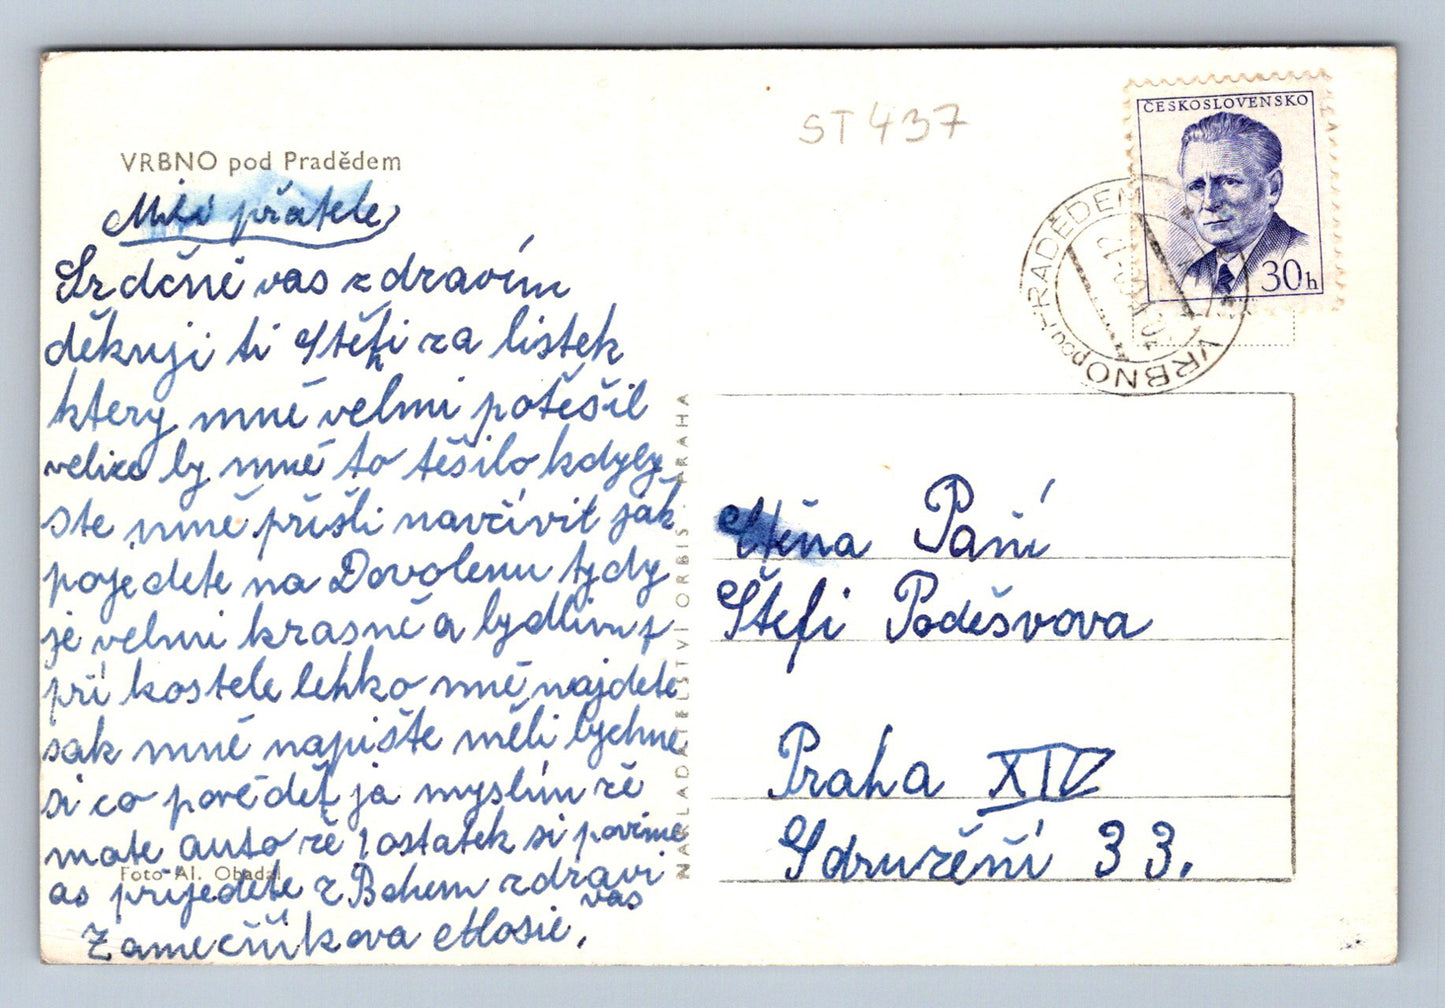 VRBNO pod Pradědem
Milí přátele,
Srdčně vas zdravím
děkuji ti Štěfi za listek
ktery mně velmi potěšil
velice by mně to těšilo kdyby
ste mně přišli navčívit jak
pojedete na Dovolenu tydy
je velmi krasně a bydlim
při kostele lehko mně najdete
sak mně napište měli bychme
si co povědět ja myslim zě
mate auto zě ostatek si povime
as prijedete z Bohem zdravi
vas
Zamečňikova
Foto Al. Obadal
NAKLADATELSTVÍ ORBIS · PRAHA
ST 437
ČESKOSLOVENSKO
30h
VRBNO pod PRADĚDEM
Pani
Štefi Poděsvova
Praha XIV
Sdruzěni 33.